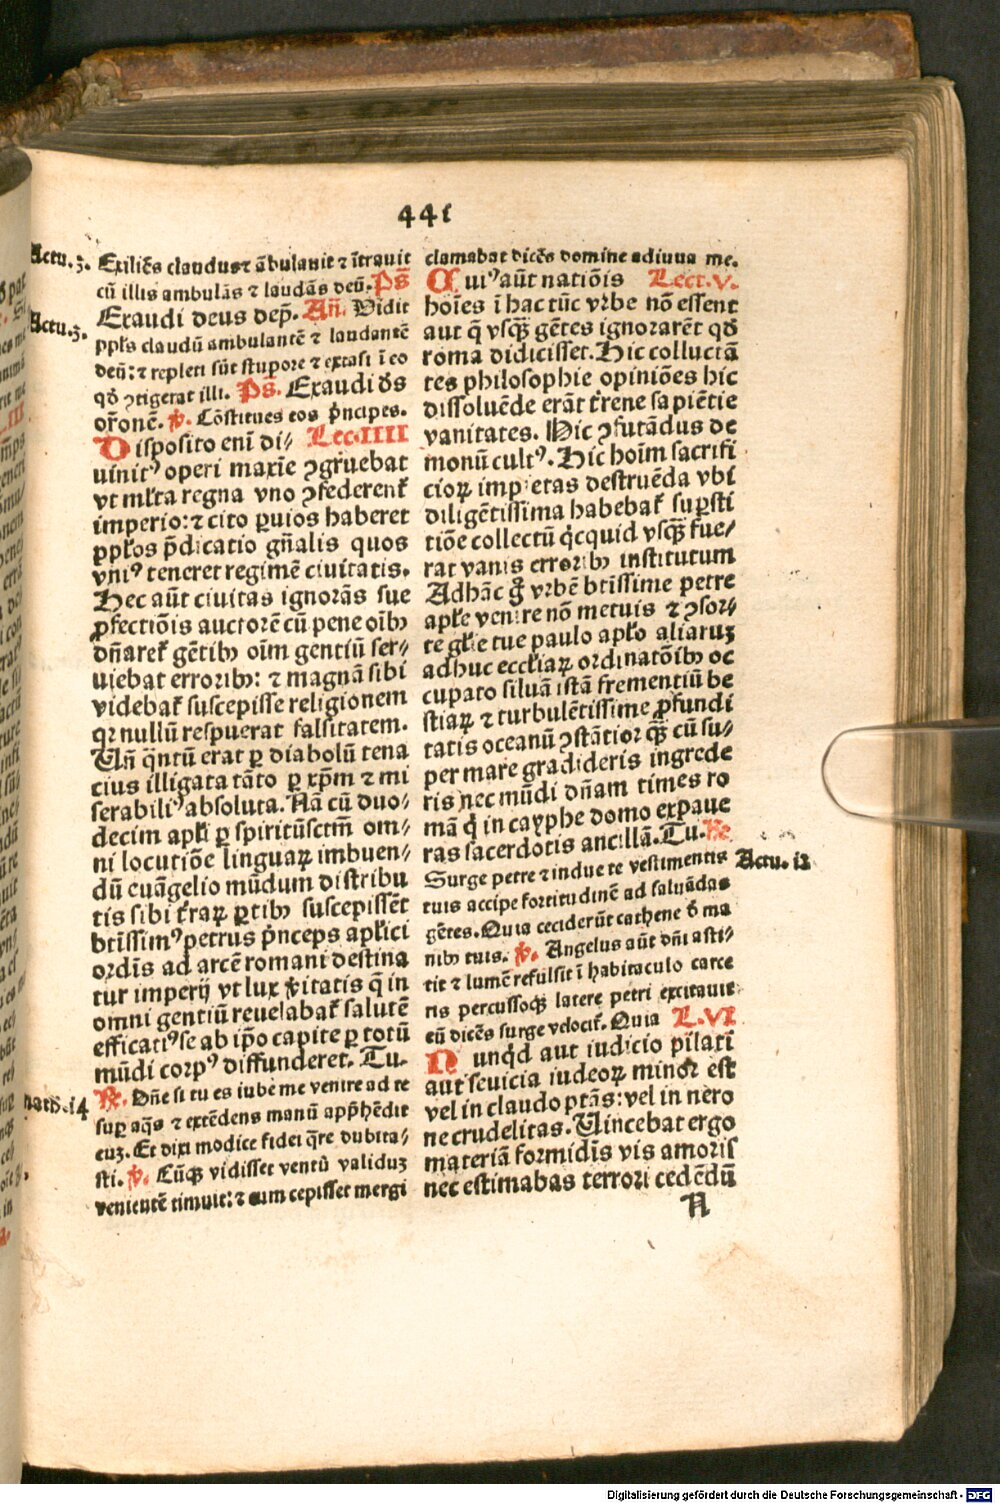 441
Actu.3.
Exiliẽs claudus ⁊ ãbulauit ⁊ ĩtrauit
cũ illis ambulãs ⁊ laudãs deũ. Ps̃
Actu.3.
Exaudi deus dep̃. Añ. Vidit
ppłs claudũ ambulantẽ ⁊ laudantẽ
deũ: ⁊ repleti sũt stupore ⁊ extasi ĩ eo
qđ ꝯtigerat illi. Ps̃. Exaudi đs
or̃onẽ. ꝟ. Cõstitues eos p̃ncipes.
Disposito enĩ di⸗ Lec.IIII
uinitꝰ operi maxĩe ꝯgr̃uebat
vt młta regna vno ꝯfederent̃
imperio: ⁊ cito ꝑuios haberet
ppłos p̃dicatio gñalis quos
vniꝰ teneret regimẽ ciuitatis.
Hec aũt ciuitas ignorãs sue
ꝓfectiõis auctorẽ cũ pene oĩbꝫ
dñaret̃ gẽtibꝫ oĩm gentiũ ser⸗
uiebat erroribꝫ: ⁊ magnã sibi
videbat̃ suscepisse religionem
qꝛ nullũ respuerat falsitatem.
Uñ q̃ntũ erat ꝑ diabolũ tena
cius illigata tãto ꝑ xp̃m ⁊ mi
serabiliꝰ absoluta. Nã cũ duo⸗
decim apłi ꝑ spiritũsctm̃ om⸗
ni locutiõe linguaꝝ imbuen⸗
dũ euãgelio mũdum distribu
tis sibi t̃raꝝ ꝑtibꝫ suscepissẽt
btĩssimꝰ petrus p̃nceps apłici
ordĩs ad arcẽ romani destina
tur imperij vt lux ꝟitatis q̃ in
omni gentiũ reuelabat̃ salutẽ
efficatiꝰ se ab ip̃o capite ꝑ totũ
mũdi corpꝰ diffunderet. Tu.
Math.14
℟. Dñe si tu es iube me venire ad te
suꝑ aq̃s ⁊ extẽdens manũ app̃hẽdit
euꝫ. Et dixi modice fidei q̃re dubita⸗
sti. ꝟ. Cũqꝫ vidisset ventũ validuꝫ
venientẽ timuit: ⁊ cum cepisset mergi
clamabat dicẽs domine adiuua me.
Cuiꝰ aũt natiõis Lect.V.
hoĩes ĩ hac tũc vrbe nõ essent
aut q̃ vsqꝫ gẽtes ignorarẽt qđ
roma didicisset. Hic colluctã
tes philosophie opiniões hic
dissoluẽde erãt t̃rene sapiẽtie
vanitates. Hic ꝯfutãdus de
monũ cultꝰ. Hic hoĩm sacrifi
cioꝝ impietas destruẽda vbi
diligẽtissima habebat̃ suꝑsti
tiõe collectũ q̇cquid vsqꝫ fue⸗
rat vanis erroribꝫ institutum
Ad hãc g̊ vrbẽ btĩssime petre
apłe venire nõ metuis ⁊ ꝯsor⸗
te głie tue paulo apło aliaruꝫ
adhuc eccłiaꝝ ordinatõibꝫ oc
cupato siluã istã frementiũ be
stiaꝝ ⁊ turbulẽtissime ꝓfundi
tatis oceanũ ꝯstãtior qꝫ cũ su⸗
per mare gradideris ingrede
ris nec mũdi dñam times ro
mã q̇ in cayphe domo expaue
ras sacerdotis ancillã. Tu. ℟e
Actu.12
Surge petre ⁊ indue te vestimentis
tuis accipe fortitudinẽ ad saluãdas
gẽtes. Quia ceciderũt cathene đ ma
nibꝫ tuis. ꝟ. Angelus aũt dñi asti⸗
tit ⁊ lumẽ refulsit ĩ habitaculo carce
ris percussoqꝫ latere petri excitauit
eũ dicẽs surge velocit̃. Quia L.VI
Nunqđ aut iudicio pilati
aut seuicia iudeoꝝ minor est
vel in claudo ptãs: vel in nero
ne crudelitas. Uincebat ergo
materiã formidĩs vis amoris
nec estimabas terrori cedẽdũ
A
Digitalisierung gefördert durch die Deutsche Forschungsgemeinschaft - DFG